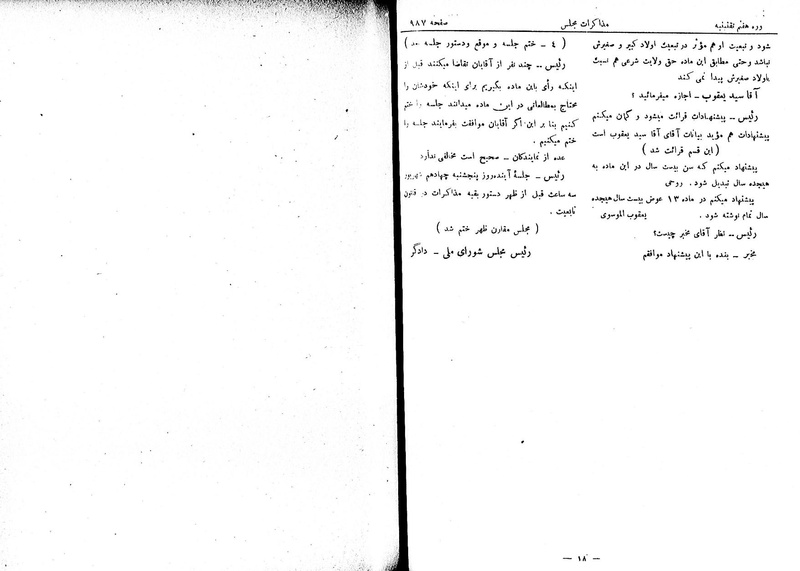 دوره هفتم تقنینیه
مذاکرات مجلس
صفحه ۹۸۷
شود و تبعیت او هم مؤثر در تبعیت اولاد کبیر و صغیرش
نباشد و حتی مطابق این ماده حق ولایت شرعی هم نسبت
باولاد صغیرش پیدا نمی کند
آقا سید یعقوب ــ اجازه میفرمائید ؟
رئیس ــ پیشنهادات قرائت میشود و گمان میکنم
پیشنهادات هم مؤید بیانات آقای آقا سید یعقوب است
( این قسم قرائت شد )
پیشنهاد میکنم که سن بیست سال در این ماده به
هیجده سال تبدیل شود . روحی
پیشنهاد میکنم در ماده ۱۳ عوض بیست سال هیجده
سال تمام نوشته شود . یعقوب الموسوی
رئیس ــ نظر آقای مخبر چیست؟
مخبر ــ بنده با این پیشنهاد موافقم
( ٤ ــ ختم جلسه و موقع ودستور جلسه بعد )
رئیس ــ چند نفر از آقایان تقاضا میکنند قبل از
اینکه رأی باین ماده بگیریم برای اینکه خودشان را
محتاج بمطالعاتی در این ماده میدانند جلسه را ختم
کنیم بنا بر این اگر آقایان موافقت بفرمایند جلسه را
ختم میکنیم .
عده از نمایندکان ــ صحیح است مخالفی ندارد
رئیس ــ جلسهٔ آینده روز پنجشنبه چهاردهم شهریور
سه ساعت قبل از ظهر دستور بقیه مذاکرات در قانون
تابعیت .
( مجلس مقارن ظهر ختم شد )
رئیس مجلس شورای ملی ــ دادگر
— ۱۸ —